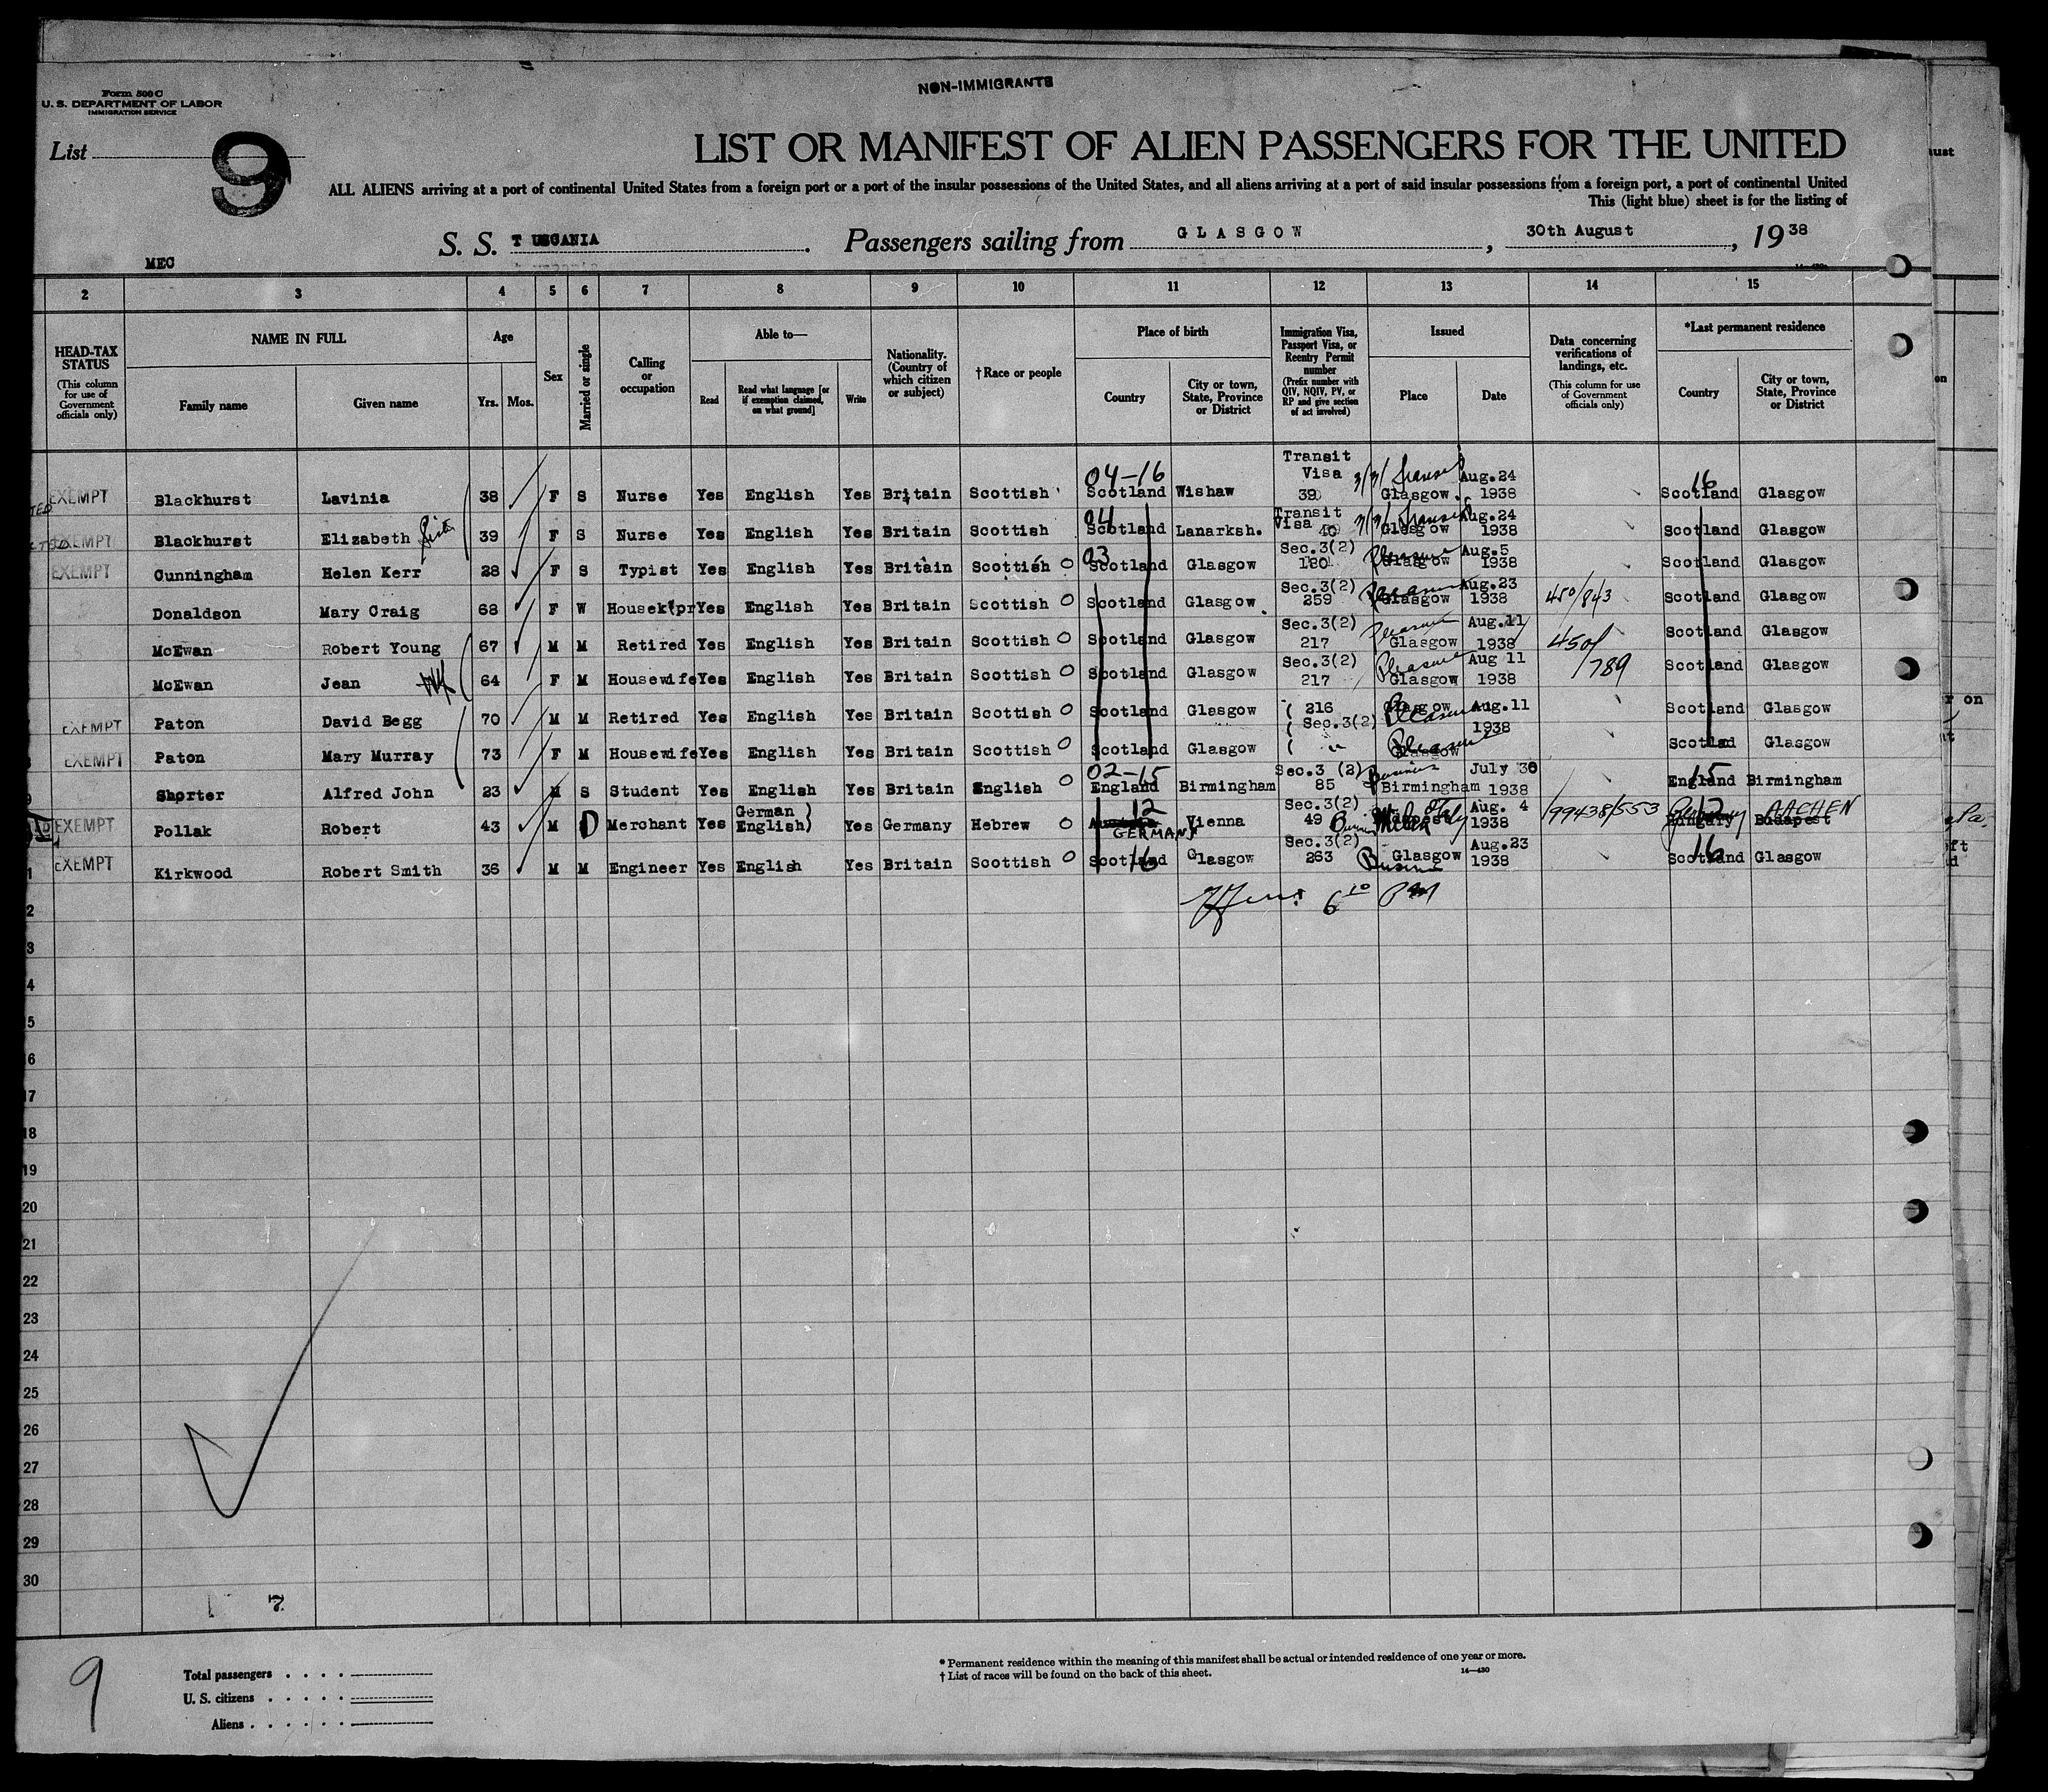 NON-IMMIGRANTS
Form 500 C
U. S. DEPARTMENT OF LABOR
IMMIGRATION SERVICE
List 9
LIST OR MANIFEST OF ALIEN PASSENGERS FOR THE UNITED
ALL ALIENS arriving at a port of continental United States from a foreign port or a port of the insular possessions of the United States, and all aliens arriving at a port of said insular possessions from a foreign port, a port of continental United
This (light blue) sheet is for the listing of
S. S. T USCANIA . Passengers sailing from GLASGOW , 30th August , 19 38
MEC
2 3 4 5 6 7 8 9 10 11 12 13 14 15
HEAD-TAX STATUS (This column for use of Government officials only)
NAME IN FULL
Family name Given name
Age
Yrs. Mos.
Sex
Married or single
Calling or occupation
Able to—
Read Read what language [or if exemption claimed, on what ground] Write
Nationality. (Country of which citizen or subject)
† Race or people
Place of birth
Country City or town, State, Province or District
Immigration Visa, Passport Visa, or Reentry Permit number (Prefix number with QIV, NQIV, PV, or RP and give section of act involved)
Issued
Place Date
Data concerning verifications of landings, etc. (This column for use of Government officials only)
*Last permanent residence
Country City or town, State, Province or District
EXEMPT Blackhurst Lavinia 38 F S Nurse Yes English Yes Britain Scottish 04-16 Scotland Wishaw Transit Visa 39 3/3/ Transit Glasgow Aug.24 1938 16 Scotland Glasgow
EXEMPT Blackhurst Elizabeth 39 F S Nurse Yes English Yes Britain Scottish 04 Scotland Lanarksh. Transit Visa 40 3/3/ Transit Glasgow Aug.24 1938 Scotland Glasgow
EXEMPT Cunningham Helen Kerr 28 F S Typist Yes English Yes Britain Scottish O 03 Scotland Glasgow Sec.3(2) 180 Pleasure Glasgow Aug.5 1938 Scotland Glasgow
Donaldson Mary Craig 68 F W Housek'pr Yes English Yes Britain Scottish O Scotland Glasgow Sec.3(2) 259 Pleasure Glasgow Aug.23 1938 450/843 Scotland Glasgow
McEwan Robert Young 67 M M Retired Yes English Yes Britain Scottish O Scotland Glasgow Sec.3(2) 217 Pleasure Glasgow Aug.11 1938 450/ Scotland Glasgow
McEwan Jean Wf 64 F M Housewife Yes English Yes Britain Scottish O Scotland Glasgow Sec.3(2) 217 Pleasure Glasgow Aug 11 1938 /789 Scotland Glasgow
EXEMPT Paton David Begg 70 M M Retired Yes English Yes Britain Scottish O Scotland Glasgow ( 216 ( Sec.3(2) Pleasure Glasgow Aug.11 1938 Scotland Glasgow
EXEMPT Paton Mary Murray 73 F M Housewife Yes English Yes Britain Scottish O Scotland Glasgow ( " Pleasure Glasgow Scotland Glasgow
Shorter Alfred John 23 M S Student Yes English Yes Britain English O 02-15 England Birmingham Sec.3 (2) 85 Business Birmingham July 30 1938 15 England Birmingham
EXEMPT Pollak Robert 43 M D Merchant Yes German English) Yes Germany Hebrew O 12 Austria GERMANY Vienna Sec.3(2) 49 Milan Italy Budapest Aug. 4 1938 /99438/553 12 Germany Hungary AACHEN Budapest
EXEMPT Kirkwood Robert Smith 36 M M Engineer Yes English Yes Britain Scottish O 16 Scotland Glasgow Sec.3(2) 263 Business Glasgow Aug.23 1938 16 Scotland Glasgow
6 10 PM
2
3
4
5
16
17
18
19
20
21
22
23
24
25
26
27
28
29
30
7
9
Total passengers
U. S. citizens
Aliens
* Permanent residence within the meaning of this manifest shall be actual or intended residence of one year or more.
† List of races will be found on the back of this sheet.
14—430